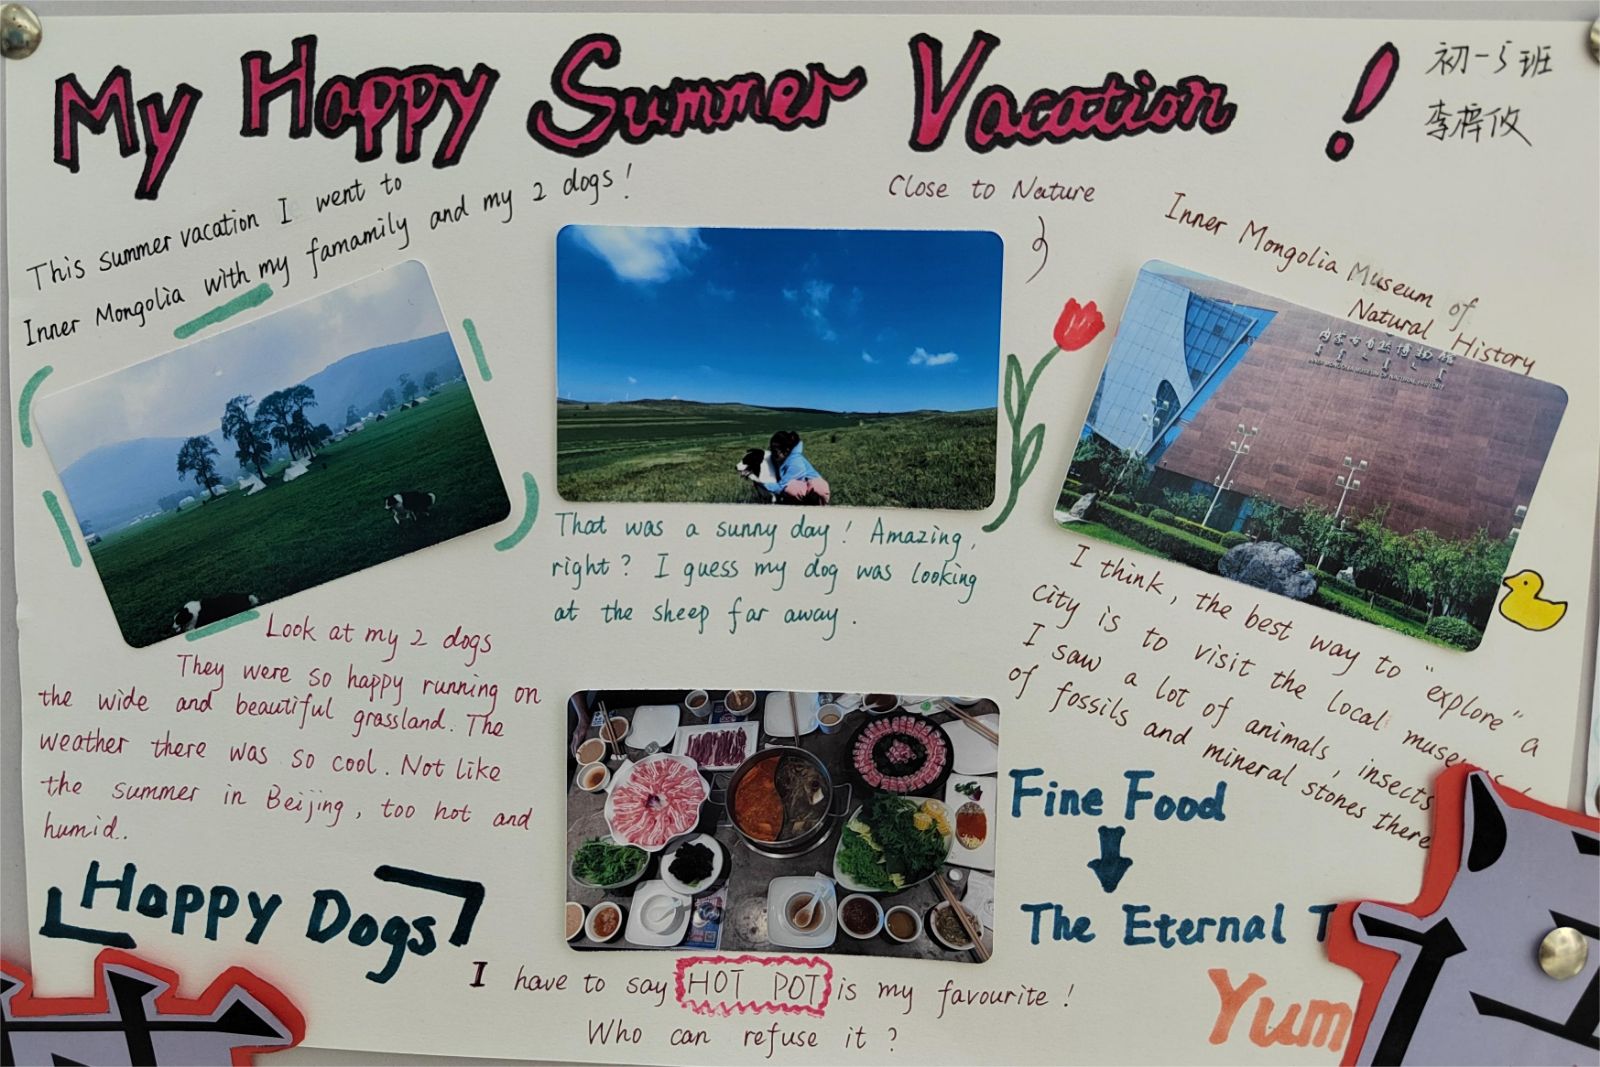 My Happy Summer Vacation !
初一5班
李梓攸
This summer vacation I went to
Inner Mongolia with my famamily and my 2 dogs!
Close to Nature
Inner Mongolia Museum of
Natural History
内蒙古自然博物馆
INNER MONGOLIA MUSEUM OF NATURAL HISTORY
That was a sunny day! Amazing,
right? I guess my dog was looking
at the sheep far away.
Look at my 2 dogs
They were so happy running on
the wide and beautiful grassland. The
weather there was so cool. Not like
the summer in Beijing, too hot and
humid.
Happy Dogs
I think, the best way to "explore" a
city is to visit the local
I saw a lot of animals, insects
of fossils and mineral stones there
Fine Food
The Eternal
I have to say HOT POT is my favourite!
Who can refuse it?
Yum